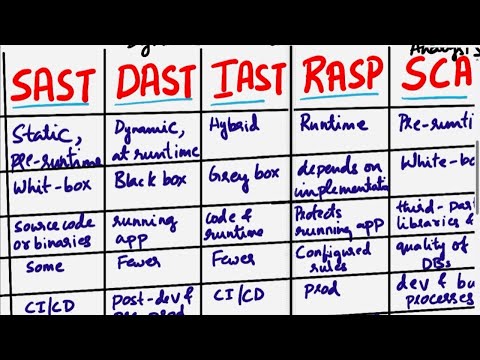 Analysis
SAST DAST IAST RASP SCA
Static, Dynamic, Hybrid Runtime Pre-runti
pre-runtime at runtime
Whit-box Black box Grey box depends on White-bo
implementation
source code running code & Protects third-part
or binaries app runtime running app libraries &
Some Fewer Fewer Configured quality of
rules DBs
CI/CD post-dev & CI/CD prod dev & bu
processes